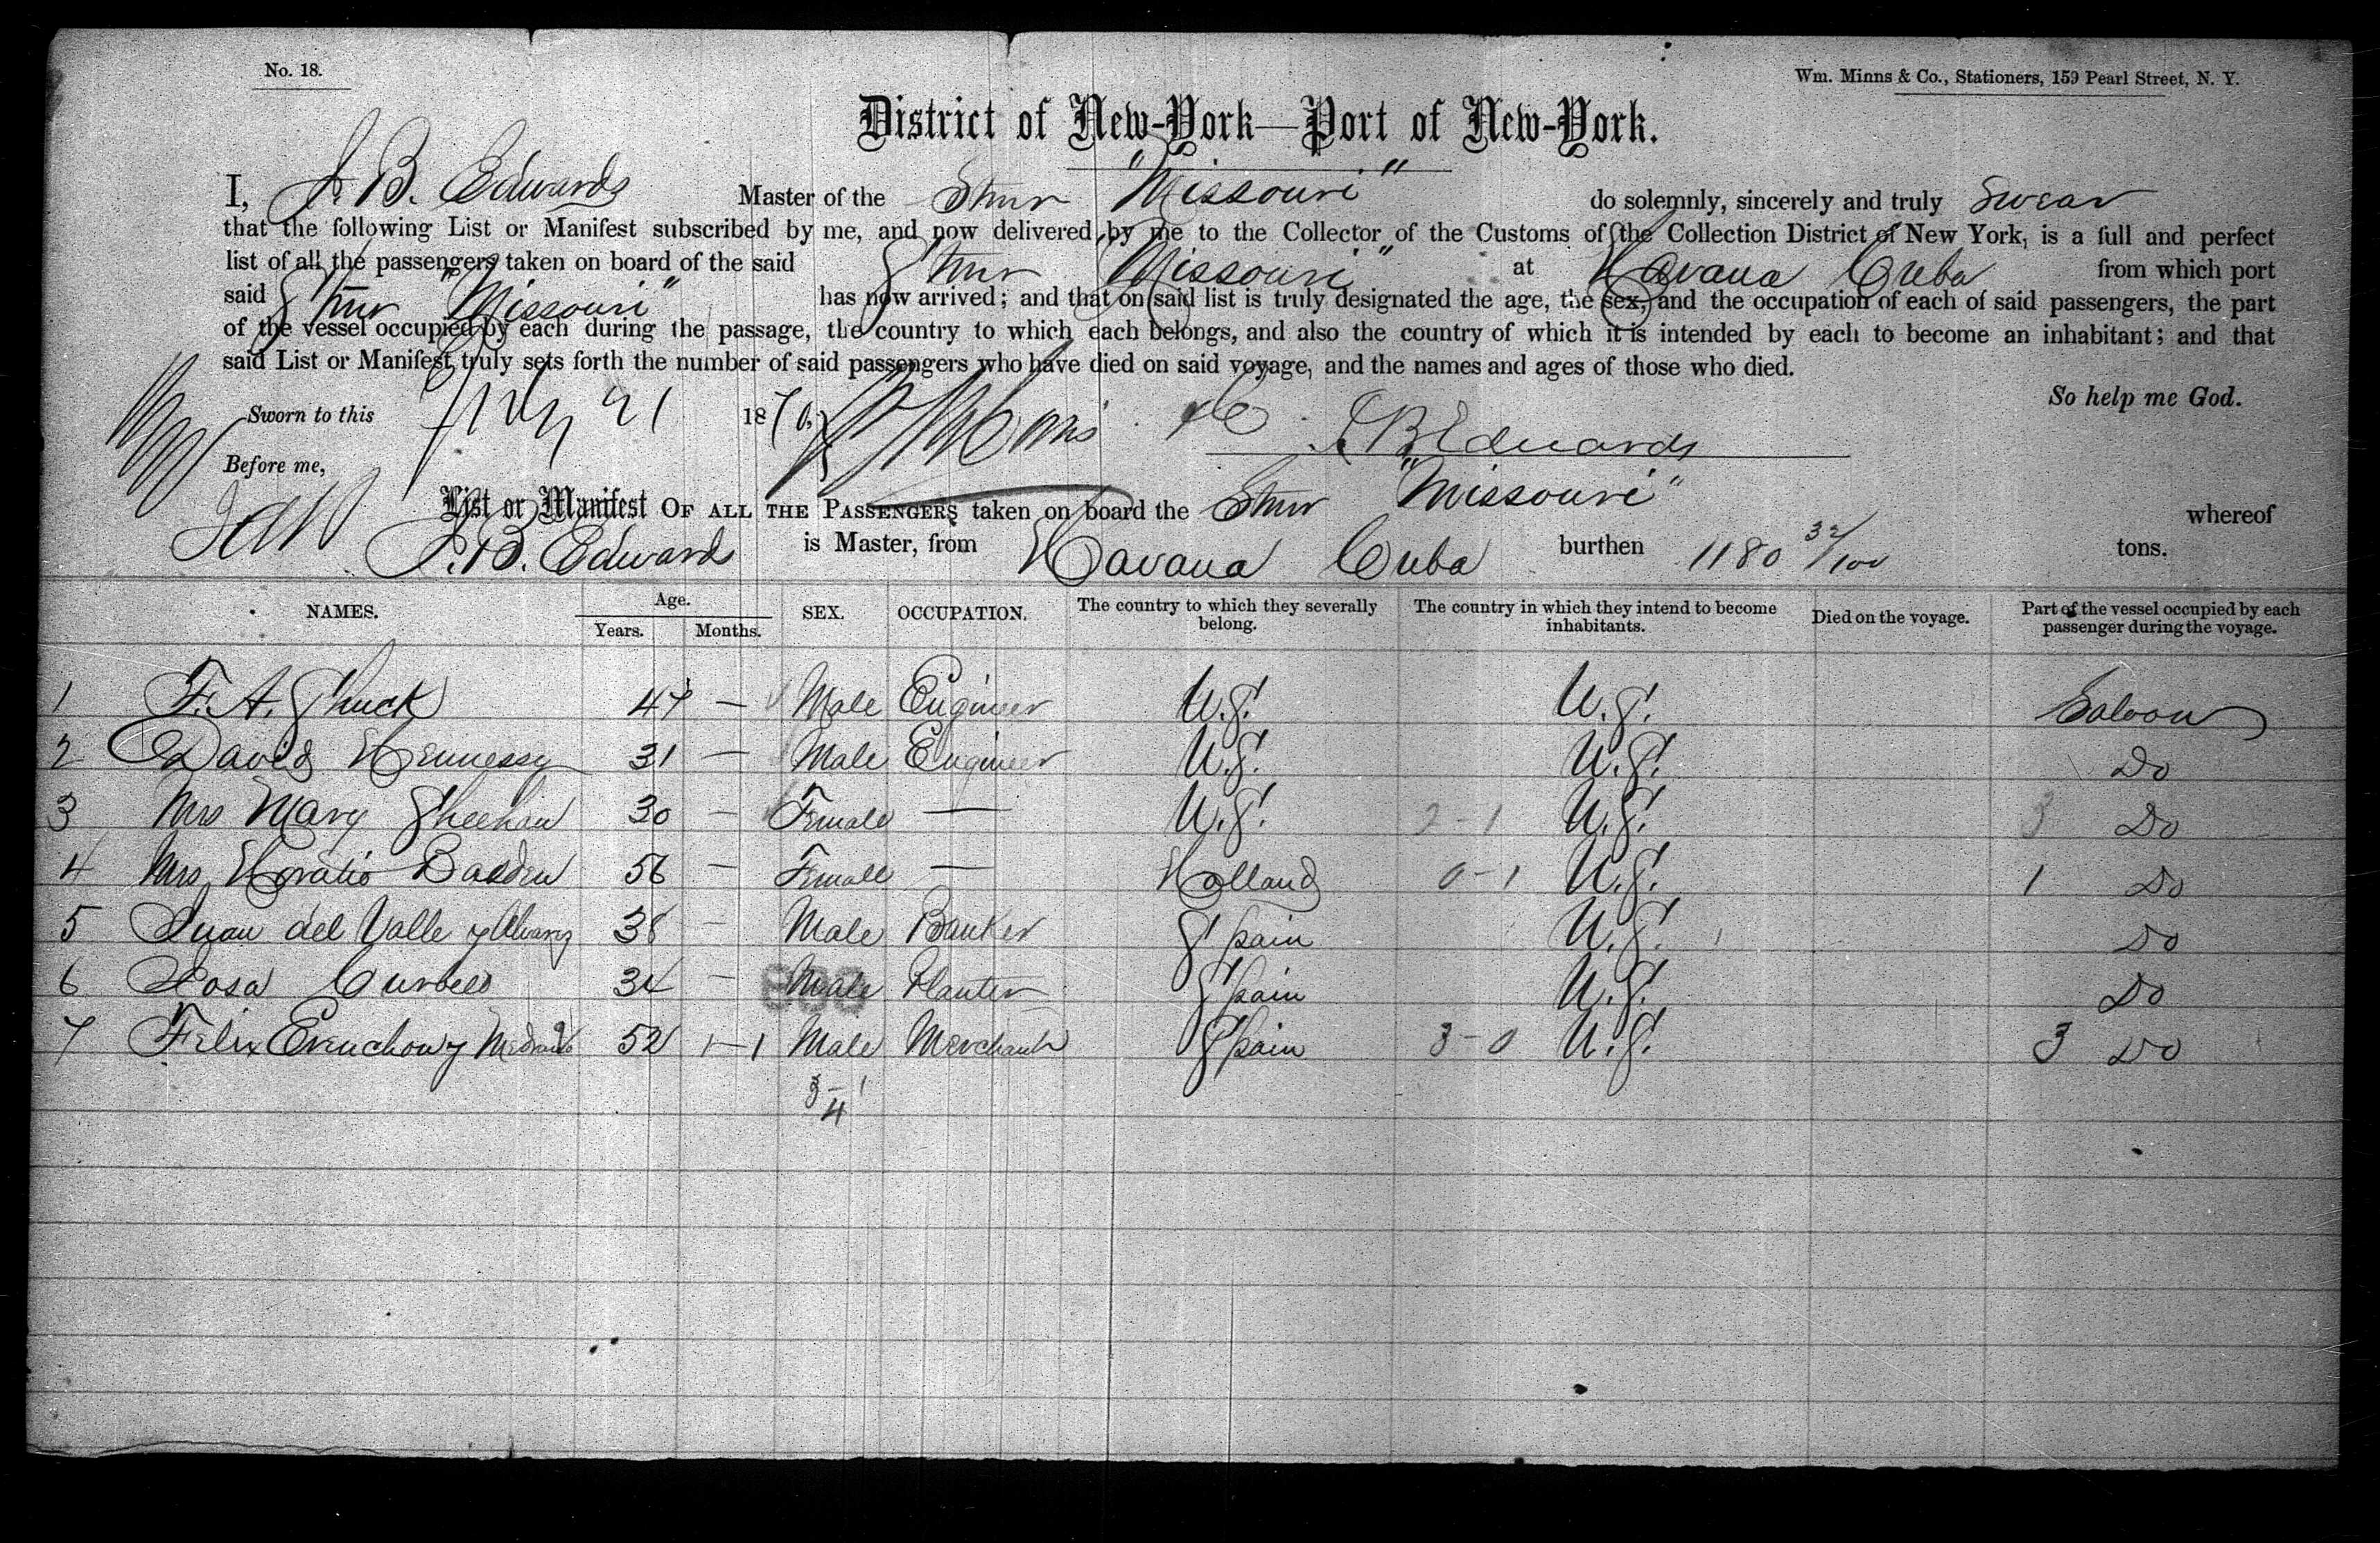 No. 18.
Wm. Minns & Co., Stationers, 159 Pearl Street, N. Y.
District of New-York—Port of New-York.
I, J. B. Edwards Master of the Stmr "Missouri" do solemnly, sincerely and truly swear
that the following List or Manifest subscribed by me, and now delivered by me to the Collector of the Customs of the Collection District of New York, is a full and perfect
list of all the passengers taken on board of the said Stmr "Missouri" at Havana Cuba from which port
said Stmr "Missouri" has now arrived; and that on said list is truly designated the age, the sex, and the occupation of each of said passengers, the part
of the vessel occupied by each during the passage, the country to which each belongs, and also the country of which it is intended by each to become an inhabitant; and that
said List or Manifest truly sets forth the number of said passengers who have died on said voyage, and the names and ages of those who died.
So help me God.
Sworn to this 21 1876
J B Edwards
Before me,
List or Manifest OF ALL THE PASSENGERS taken on board the Stmr "Missouri" whereof
J. B. Edwards is Master, from Havana Cuba burthen 1180 32/100 tons.
NAMES. Age. Years. Months. SEX. OCCUPATION. The country to which they severally belong. The country in which they intend to become inhabitants. Died on the voyage. Part of the vessel occupied by each passenger during the voyage.
1 F. A. Shuck 47 — Male Engineer U.S. U.S. Saloon
2 David Hennessy 31 — Male Engineer U.S. U.S. Do
3 Mrs Mary Sheehan 30 — Female — U.S. 2-1 U.S. 3 Do
4 Mrs Horatio Basden 56 — Female — Holland 0-1 U.S. 1 Do
5 Juan del Valle y Alvarez 38 — Male Banker Spain U.S. Do
6 Rosa Curbelo 34 — Male Planter Spain U.S. Do
7 Felix 52 1-1 Male Merchant Spain 3-0 U.S. 3 Do
3-1
4